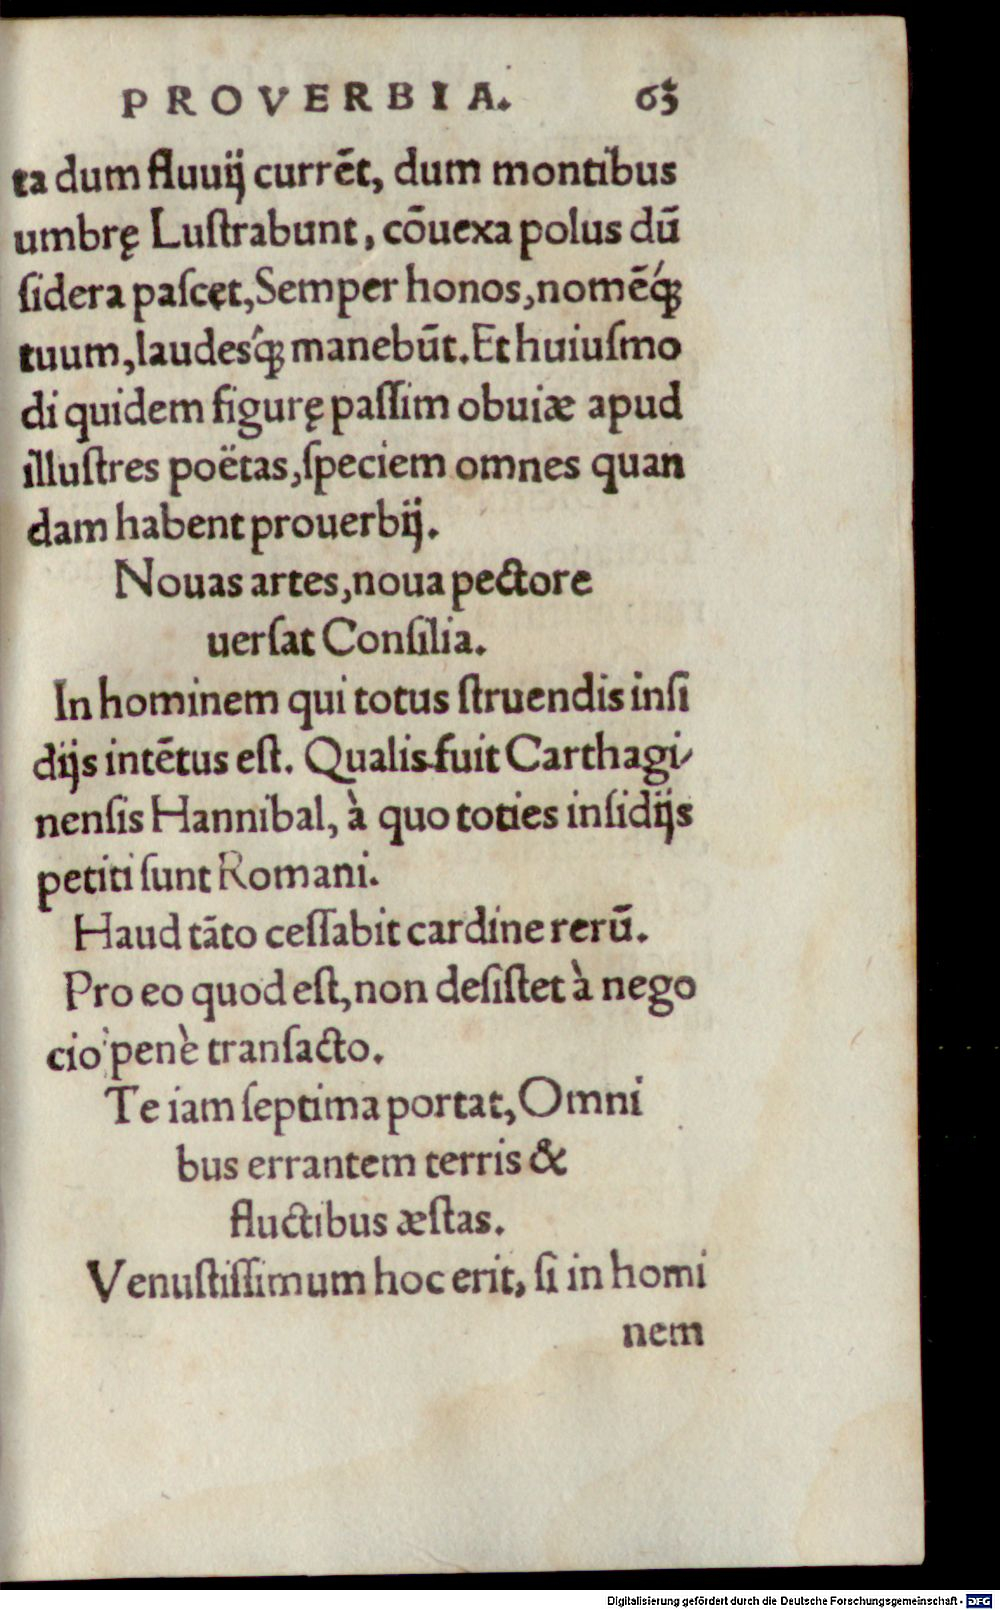 PROVERBIA. 63
ta dum fluuij currēt, dum montibus
umbrę Luſtrabunt, cōuexa polus dū
ſidera paſcęt, Semper honos, nomēq́ꝫ
tuum, laudesq́ꝫ manebūt. Et huiuſmo
di quidem figurę paſſim obuiæ apud
illuſtres poëtas, ſpeciem omnes quan
dam habent prouerbij.
Nouas artes, noua pectore
uerſat Conſilia.
In hominem qui totus ſtruendis inſi
dijs intētus eſt. Qualis fuit Carthagi/
nenſis Hannibal, à quo toties inſidijs
petiti ſunt Romani.
Haud tāto ceſſabit cardine rerū.
Pro eo quod eſt, non deſiſtet à nego
cio penè tranſacto.
Te iam ſeptima portat, Omni
bus errantem terris &
fluctibus æſtas.
Venuſtiſſimum hoc erit, ſi in homi
nem
Digitalisierung gefördert durch die Deutsche Forschungsgemeinschaft - DFG